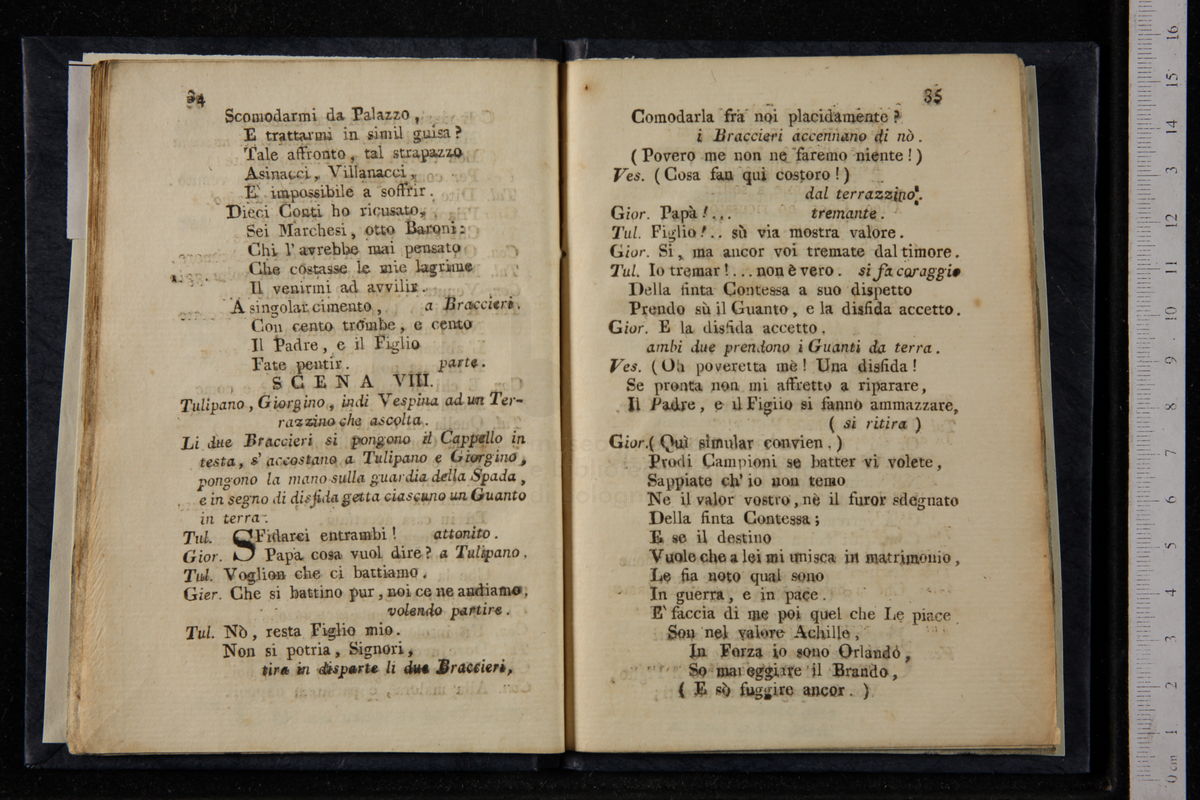 34
Scomodarmi da Palazzo,
E trattarmi in simil guisa?
Tale affronto, tal strapazzo
Asinacci, Villanacci,
E' impossibile a soffrir.
Dieci Conti ho ricusato,
Sei Marchesi, otto Baroni:
Chi l'avrebbe mai pensato
Che costasse le mie lagrime
Il venirmi ad avvilir.
A singolar cimento, a Braccieri.
Con cento trombe, e cento
Il Padre, e il Figlio
Fate pentir. parte.
SCENA VIII.
Tulipano, Giorgino, indi Vespina ad un Ter-
razzino che ascolta.
Li due Braccieri si pongono il Cappello in
testa, s'accostano a Tulipano e Giorgino,
pongono la mano sulla guardia della Spada,
e in segno di disfida getta ciascuno un Guanto
in terra.
Tul. SFidarci entrambi! attonito.
Gior. Papà cosa vuol dire? a Tulipano.
Tul. Voglion che ci battiamo.
Gier. Che si battino pur, noi ce ne andiamo.
volendo partire.
Tul. Nò, resta Figlio mio.
Non si potria, Signori,
tira in disparte li due Braccieri,
35
Comodarla frà noi placidamente?
i Braccieri accennano di nò.
(Povero me non ne faremo niente!)
Ves. (Cosa fan qui costoro!)
dal terrazzino.
Gior. Papà!... tremante.
Tul. Figlio!.. sù via mostra valore.
Gior. Si, ma ancor voi tremate dal timore.
Tul. Io tremar!... non è vero. si fa coraggio
Della finta Contessa a suo dispetto
Prendo sù il Guanto, e la disfida accetto.
Gior. E la disfida accetto.
ambi due prendono i Guanti da terra.
Ves. (Oh poveretta mè! Una disfida!
Se pronta non mi affretto a riparare,
Il Padre, e il Figlio si fanno ammazzare,
( si ritira )
Gior. (Quì simular convien.)
Prodi Campioni se batter vi volete,
Sappiate ch'io non temo
Ne il valor vostro, nè il furor sdegnato
Della finta Contessa;
E se il destino
Vuole che a lei mi unisca in matrimonio,
Le fia noto qual sono
In guerra, e in pace.
E' faccia di me poi quel che Le piace
Son nel valore Achille,
In Forza io sono Orlandò,
So maneggiare il Brando,
( E sò fuggire ancor. )